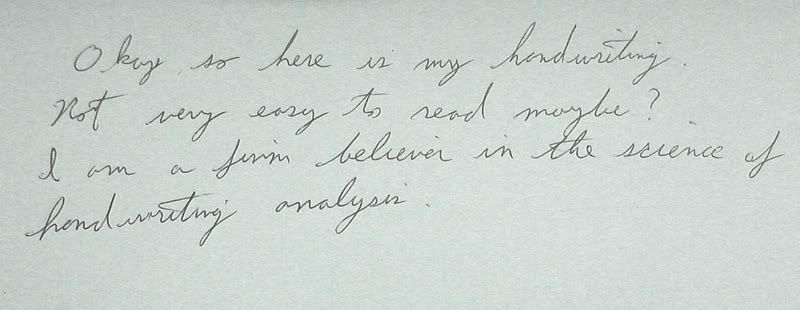 Okay so here is my handwriting.
Not very easy to read maybe?
I am a firm believer in the science of
handwriting analysis.